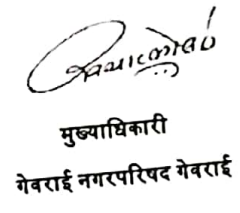 मुख्याधिकारी
गेवराई नगरपरिषद गेवराई